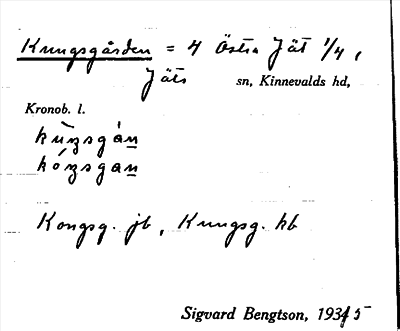 Kungsgården = 4 Östra Jät 1/4,
Jäts sn, Kinnevalds hd,
Kronob. l.
kùŋsgàn
kóŋsgan
Kongsg. jb, Kungsg. kb
Sigvard Bengtson, 1934